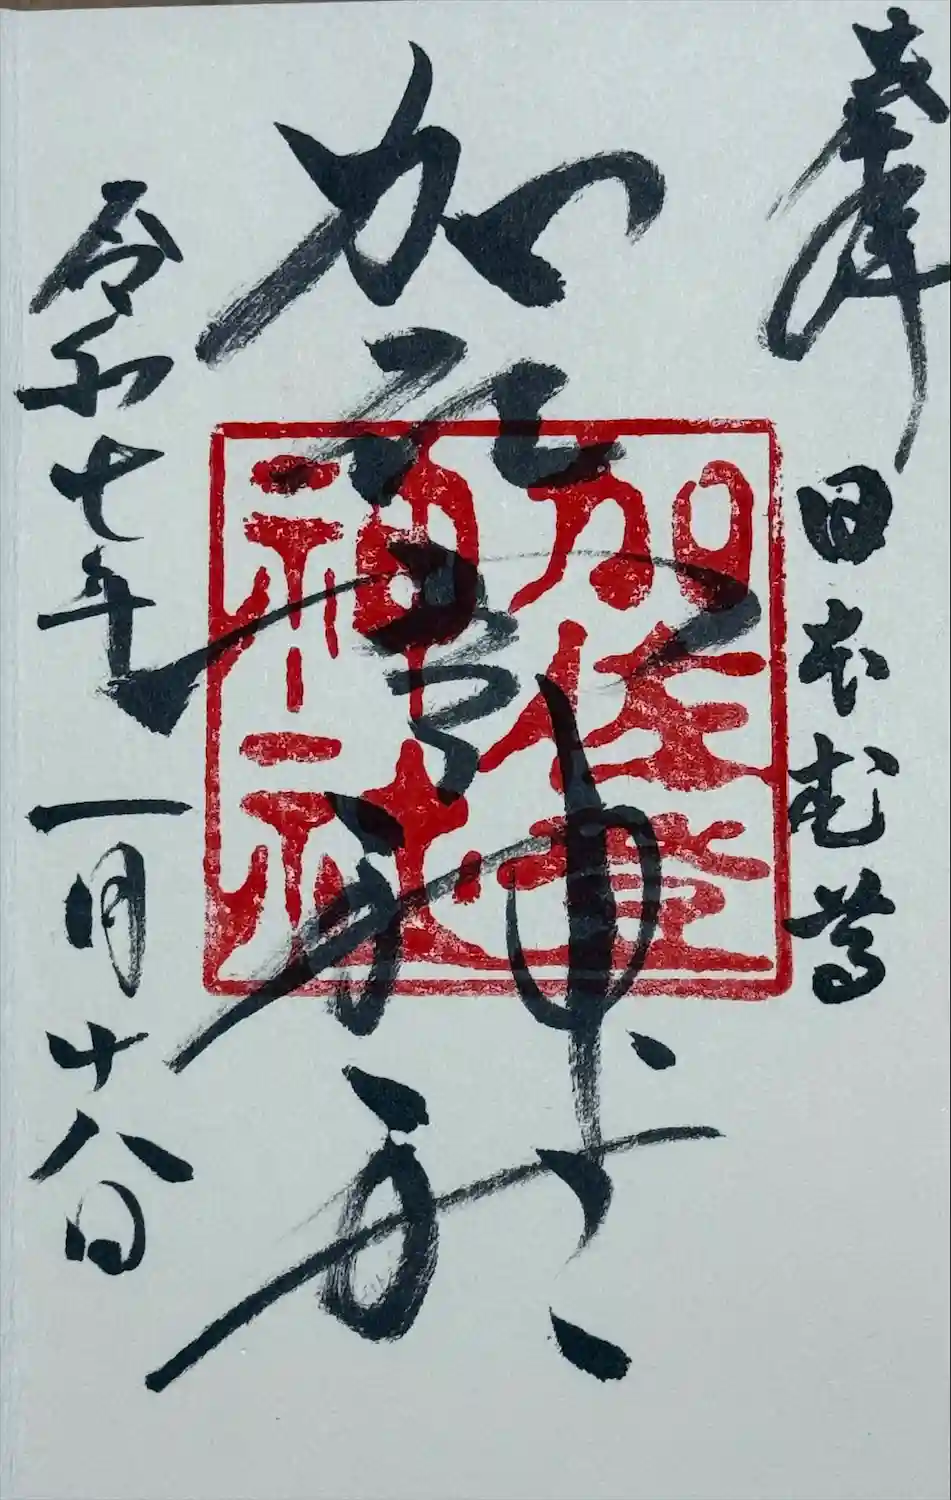 奉拝
日本武尊
加佐登神社
加佐登神社
令和七年一月十八日